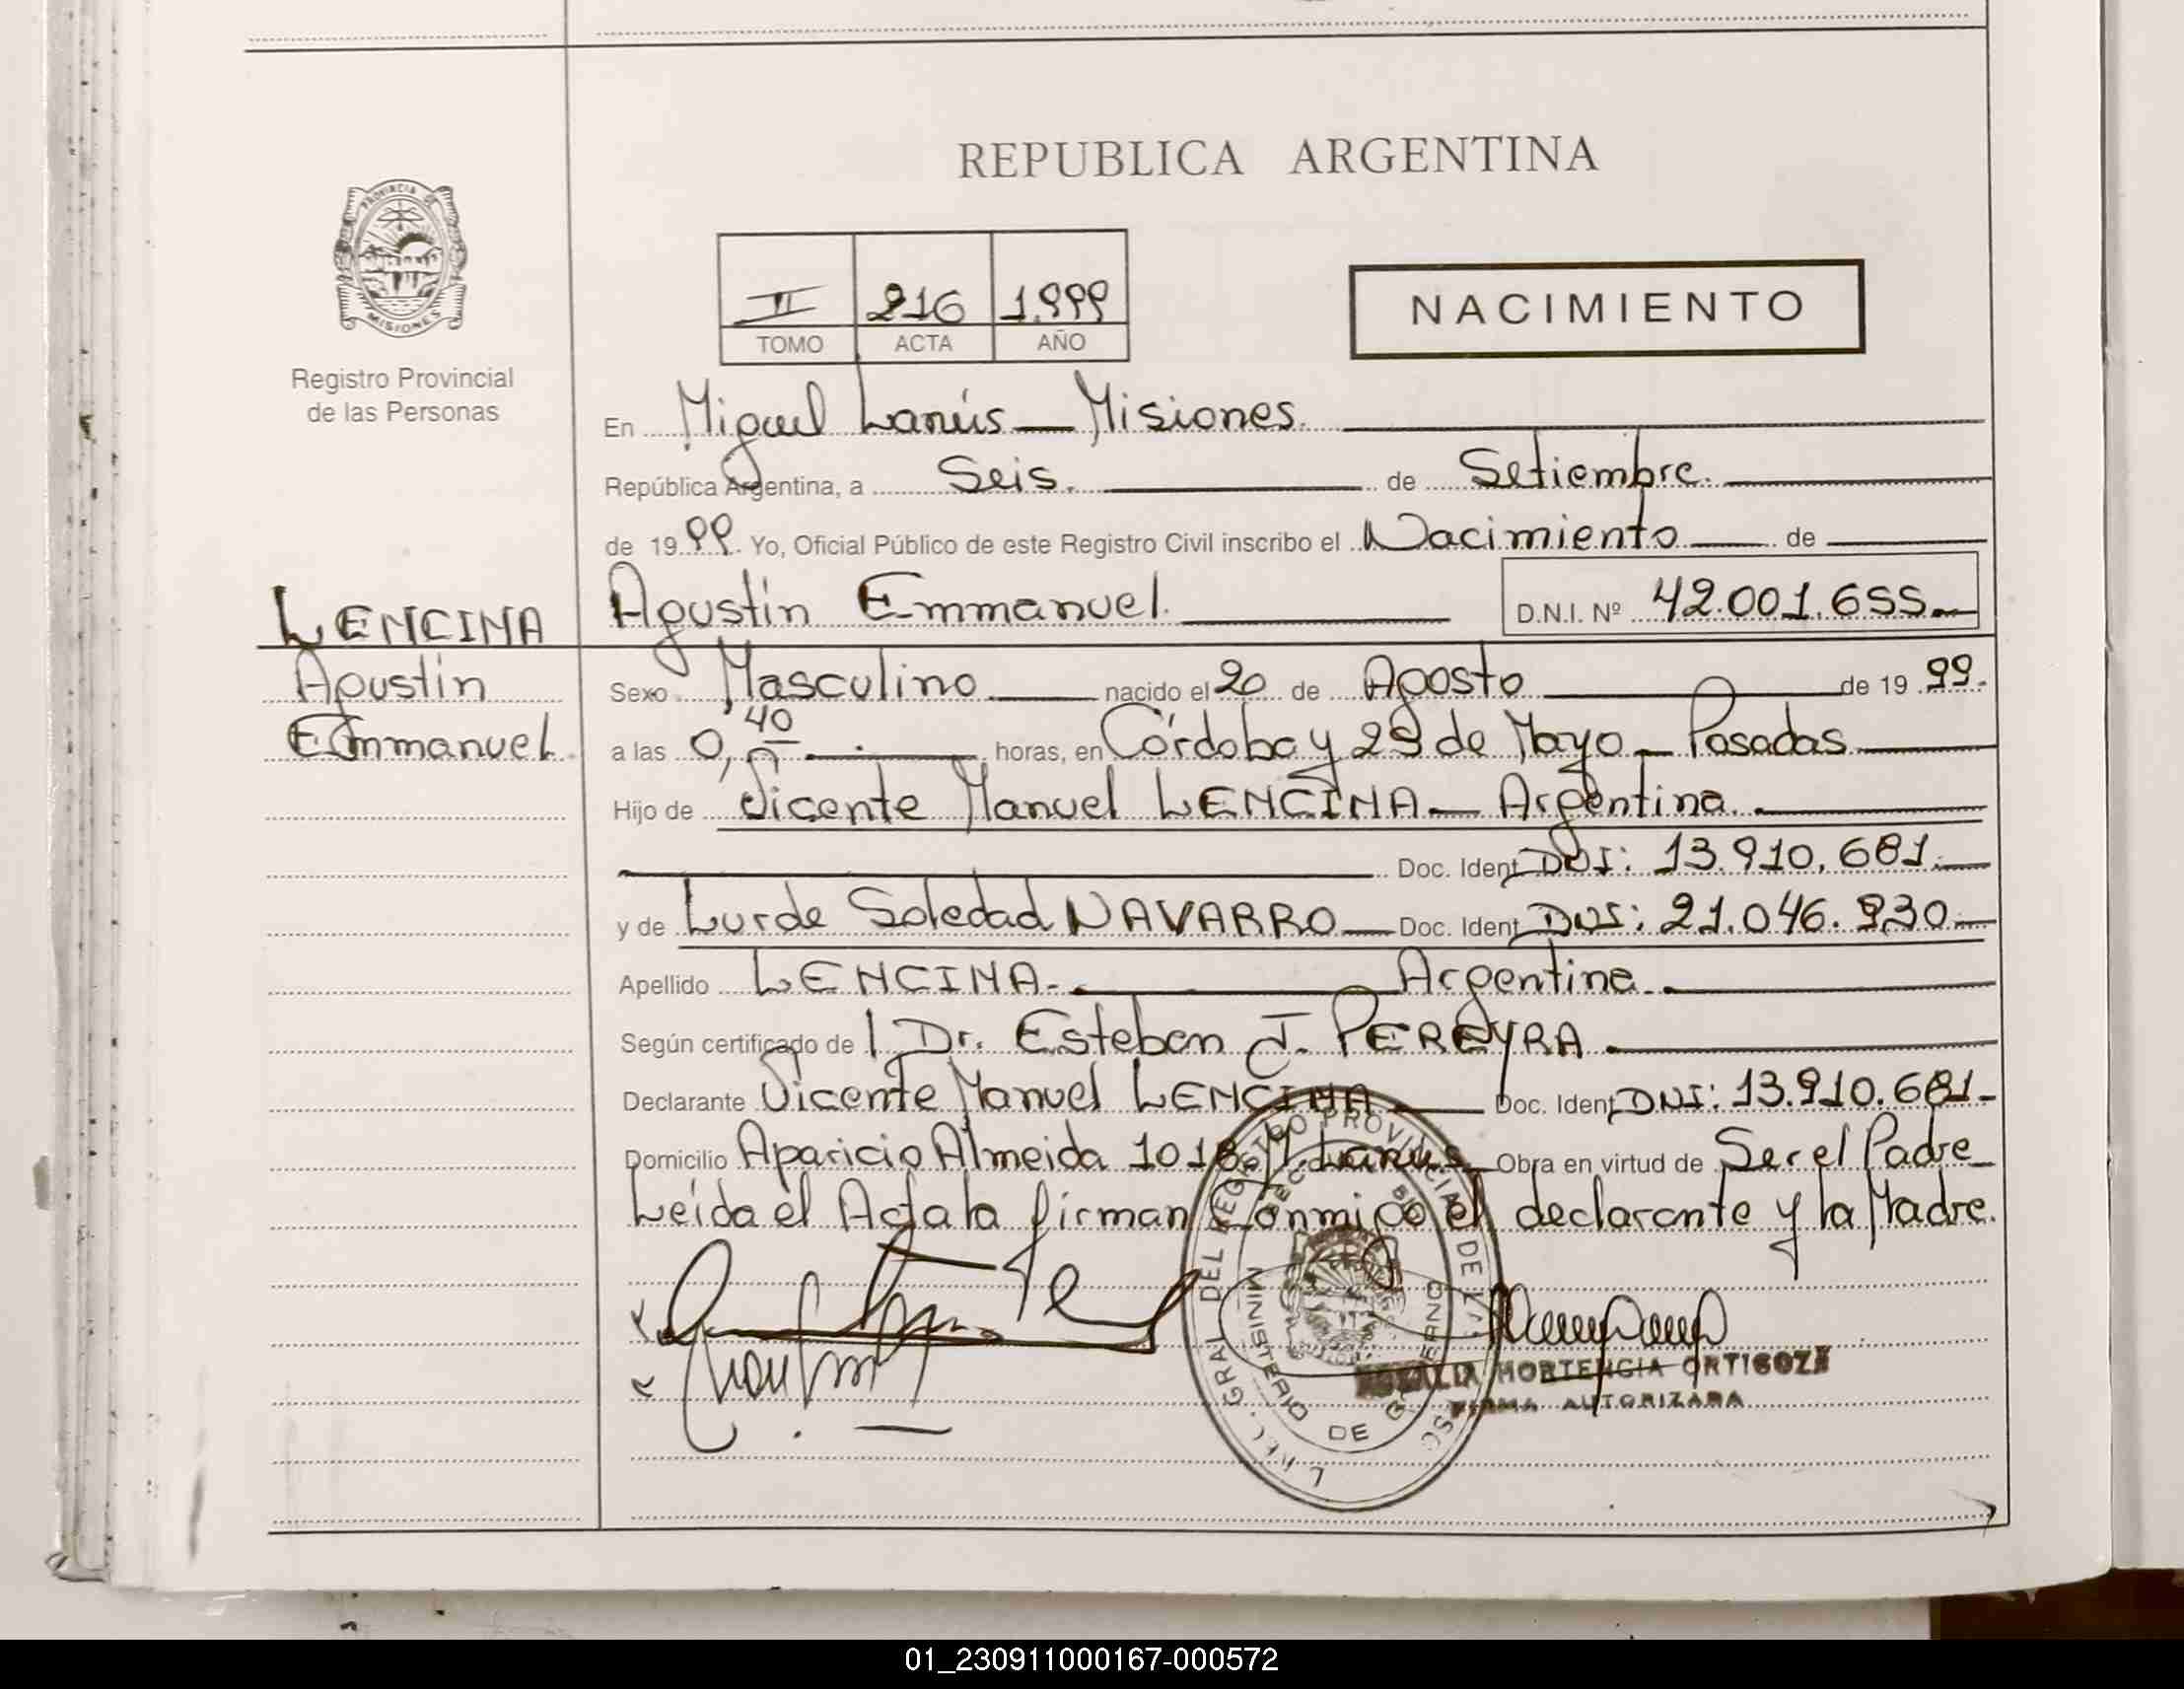 REPUBLICA ARGENTINA
PROVINCIA DE
MISIONES
Registro Provincial
de las Personas
II 216 1.999
TOMO ACTA AÑO
NACIMIENTO
En Miguel Lanús — Misiones.
República Argentina, a Seis. de Setiembre.
de 1999. Yo, Oficial Público de este Registro Civil inscribo el Nacimiento de
LENCINA
Agustín
Emmanuel.
Agustín Emmanuel. D.N.I. Nº 42.001.655
Sexo Masculino nacido el 20 de Agosto de 19 99.
a las 0,40 horas, en Córdoba y 29 de Mayo - Posadas
Hijo de Vicente Manuel LENCINA — Argentina.
Doc. Ident. DNI: 13.910.681.
y de Lurde Soledad NAVARRO — Doc. Ident. DNI: 21.046.930.
Apellido LENCINA. Argentina.
Según certificado de l Dr. Esteban J. PEREYRA.
Declarante Vicente Manuel LENCINA Doc. Ident. DNI: 13.910.681-
Domicilio Aparicio Almeida 1018. M. Lanús Obra en virtud de Ser el Padre
Leída el Acta la firman Conmigo el declarante y la Madre.
GRAL. DEL REGISTRO PROVINCIAL DE
MINISTERIO DE GOBIERNO
HORTENCIA ORTIGOZA
FIRMA AUTORIZADA
01_230911000167-000572